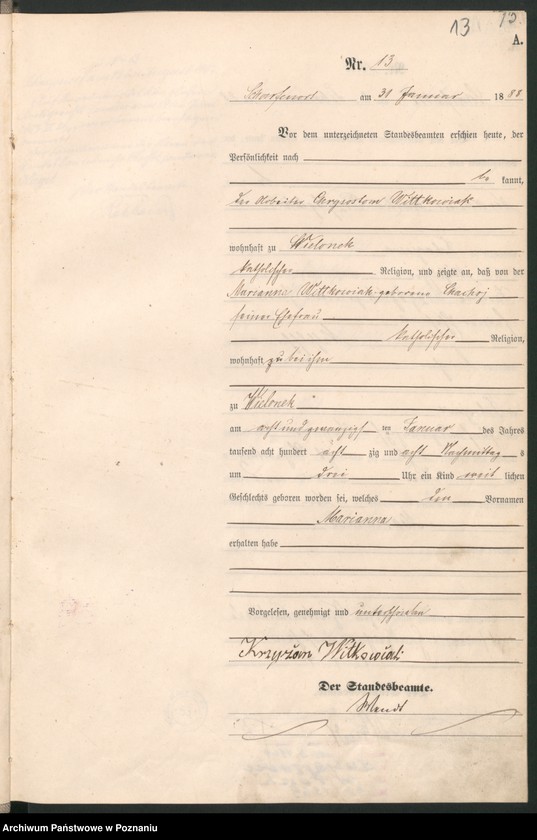 13
A.
Nr. 13
Scharfenort am 31 Januar 1888
Vor dem unterzeichneten Standesbeamten erschien heute, der
Persönlichkeit nach
be kannt,
der Arbeiter Chryzostom Wittkowiak
wohnhaft zu Wielonek
katholischer Religion, und zeigte an, daß von der
Marianna Wittkowiak geborene
seiner Ehefrau
katholischer Religion,
wohnhaft zu bei ihm
zu Wielonek
am acht und zwanzigsten Januar des Jahres
tausend acht hundert acht zig und acht Nachmittag s
um drei Uhr ein Kind weib lichen
Geschlechts geboren worden sei, welches den Vornamen
Marianna
erhalten habe
Vorgelesen, genehmigt und unterschrieben
Der Standesbeamte.
Wendt
Archiwum Państwowe w Poznaniu